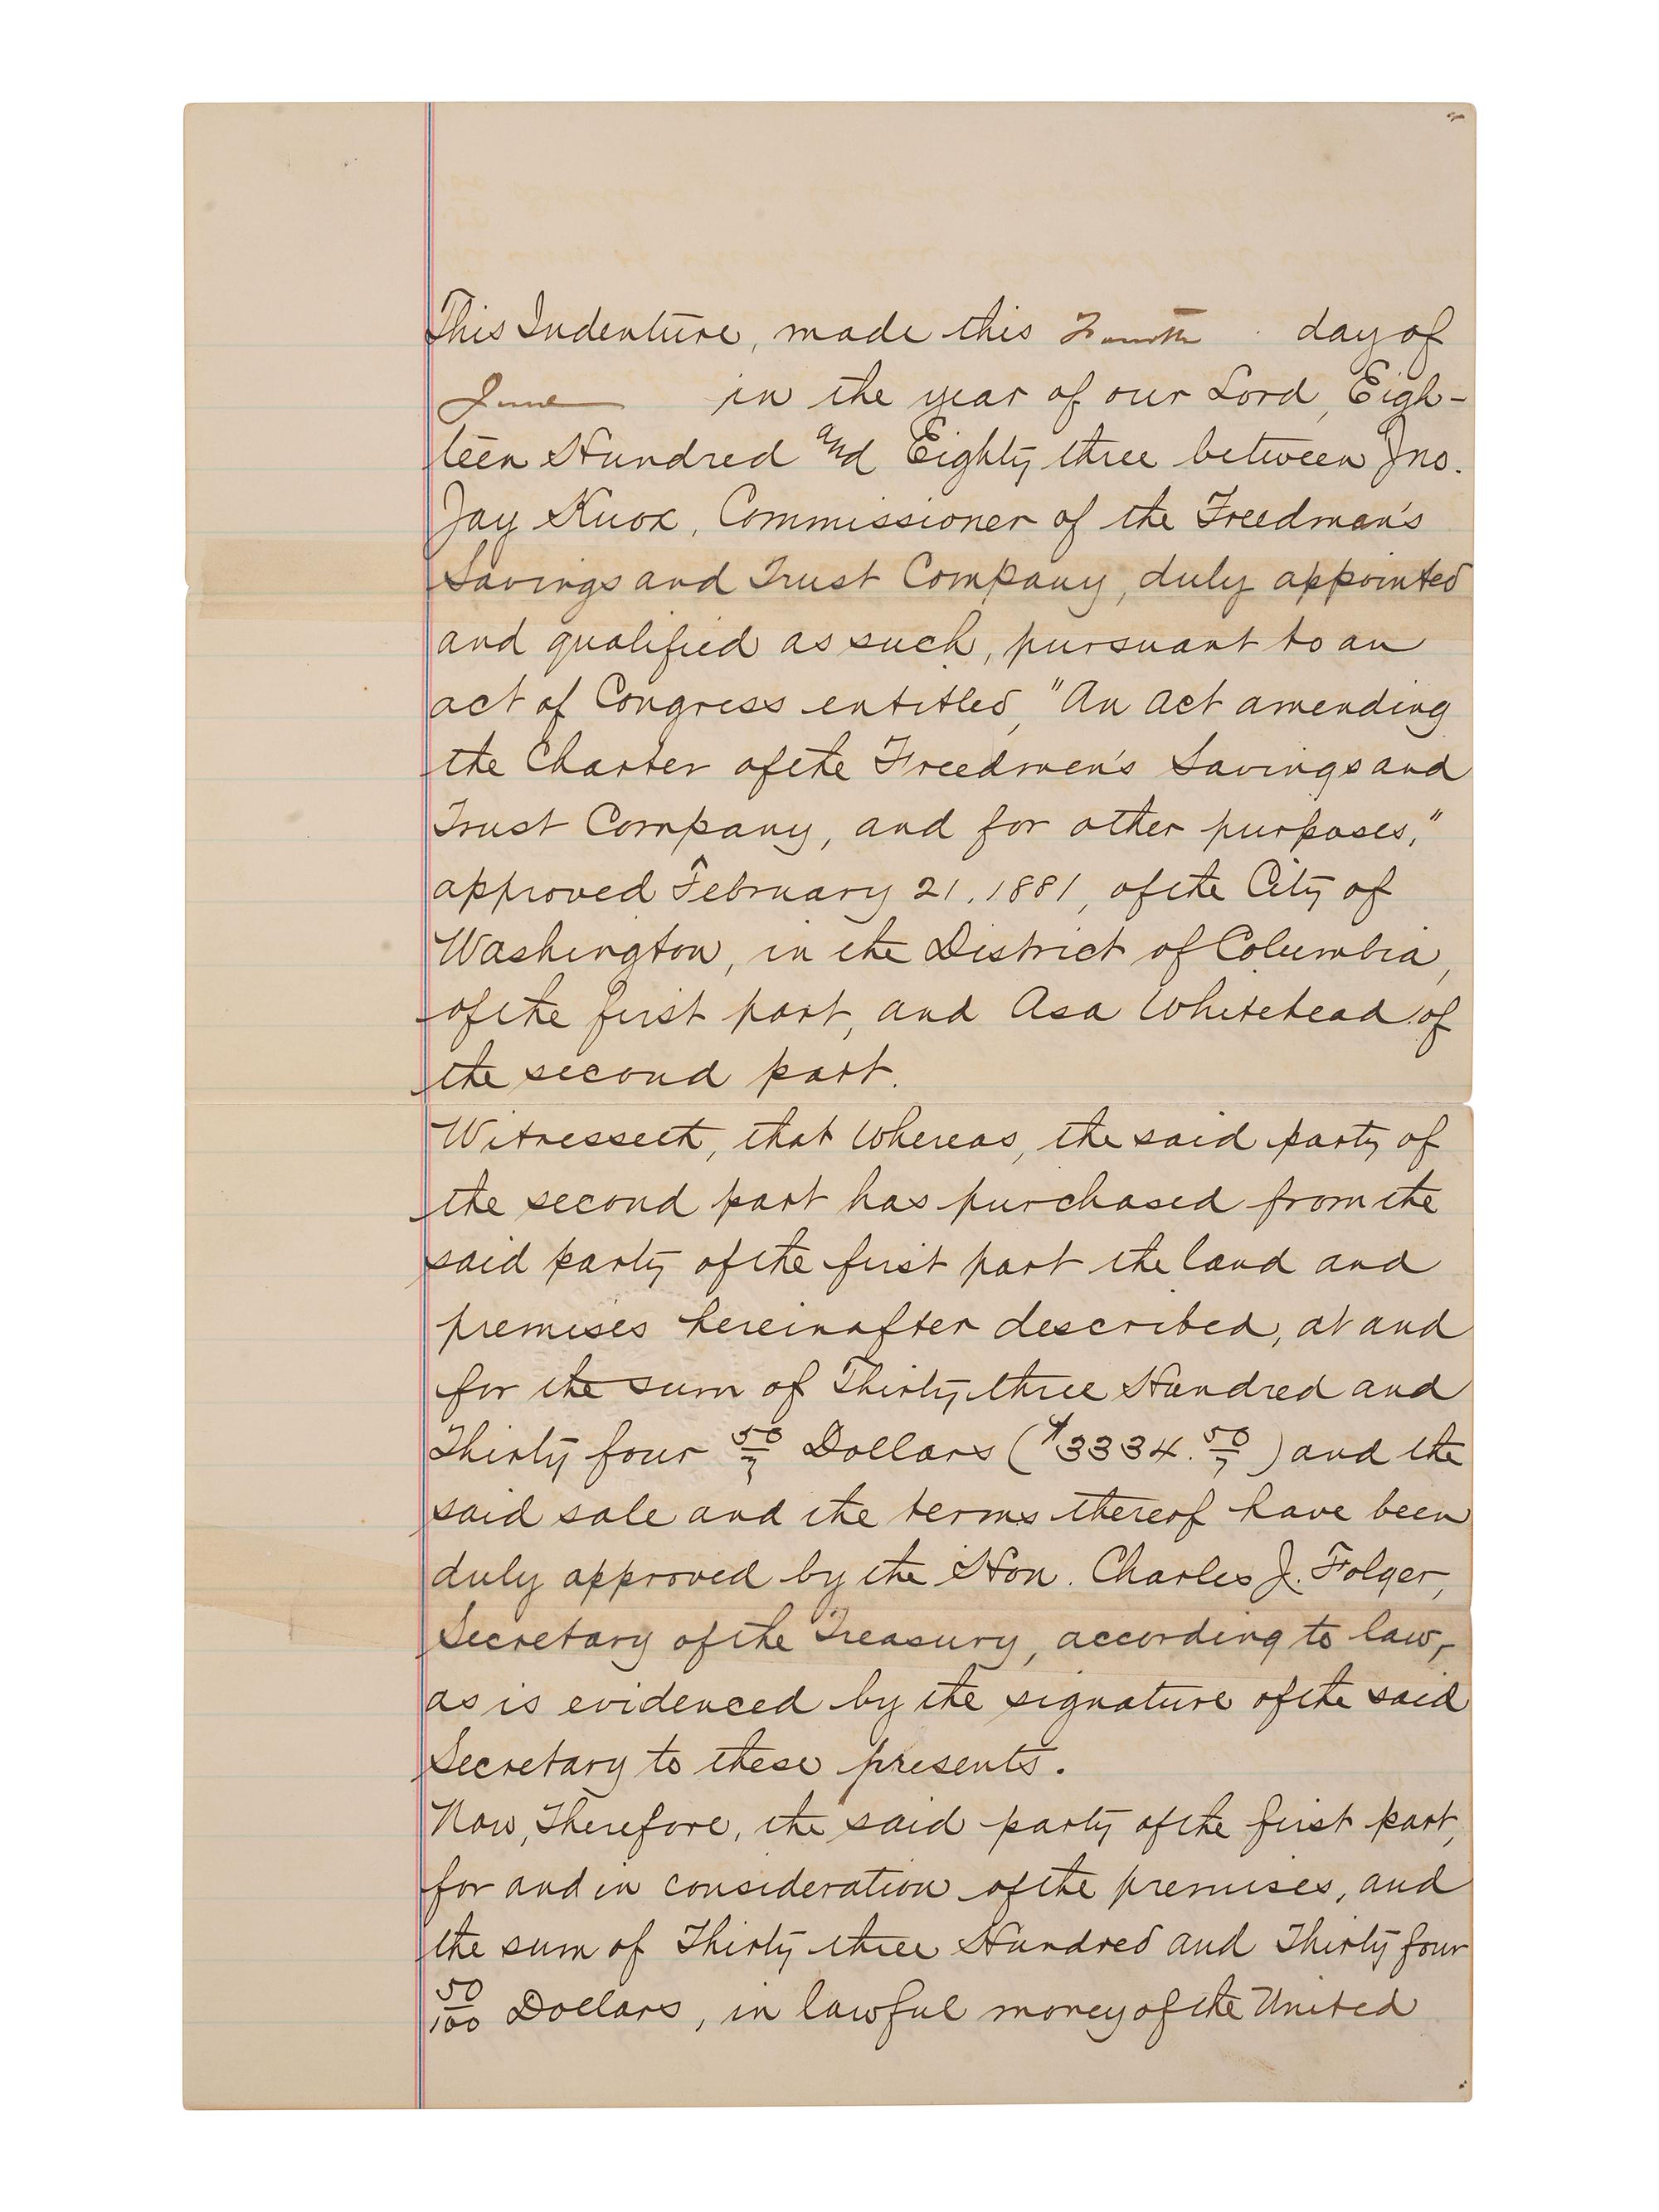 This Indenture, made this Fourth day of
June in the year of our Lord, Eigh-
teen Hundred and Eighty three between Jno.
Jay Knox, Commissioner of the Freedman's
Savings and Trust Company, duly appointed
and qualified as such, pursuant to an
act of Congress entitled, "An Act amending
the Charter of the Freedmen's Savings and
Trust Company, and for other purposes,"
approved February 21, 1881, of the City of
Washington, in the District of Columbia,
of the first part, and Asa Whitehead of
the second part.
Witnesseth, that whereas, the said party of
the second part has purchased from the
said party of the first part the land and
premises hereinafter described, at and
for the sum of Thirty three Hundred and
Thirty four 50/ Dollars ($3334.50/ ) and the
said sale and the terms thereof have been
duly approved by the Hon. Charles J. Folger,
Secretary of the Treasury, according to law,
as is evidenced by the signature of the said
Secretary to these presents.
Now, Therefore, the said party of the first part,
for and in consideration of the premises, and
the sum of Thirty three Hundred and Thirty four
50/100 Dollars, in lawful money of the United